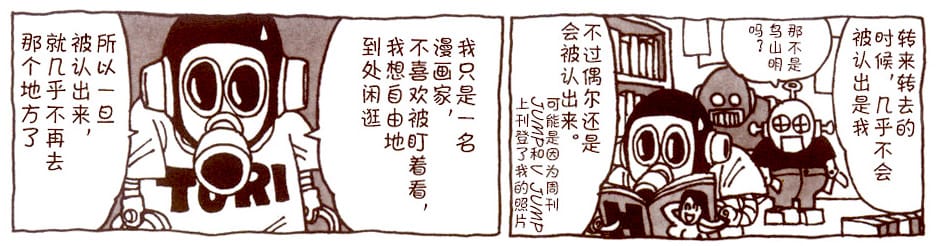 转来转去的
时候，几乎不会
被认出是我
那不是
鸟山明
吗？
不过偶尔还是
会被认出来。
可能是因为周刊
JUMP和V JUMP
上刊登了我的照片
我只是一名
漫画家，
不喜欢被盯着看，
我想自由地
到处闲逛
所以一旦
被认出来，
就几乎不再去
那个地方了
TORI